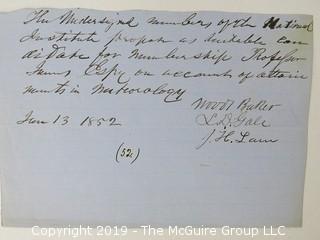 The Undersigned members of the National
Institute propose as suitable can
didate for Membership Professor
James Espy on account of attain
ments in Meteorology
Woodf Baker
Jan 13 1852
L. D. Gale
J. H. Lane
(52)
Copyright © 2019 - The McGuire Group LLC